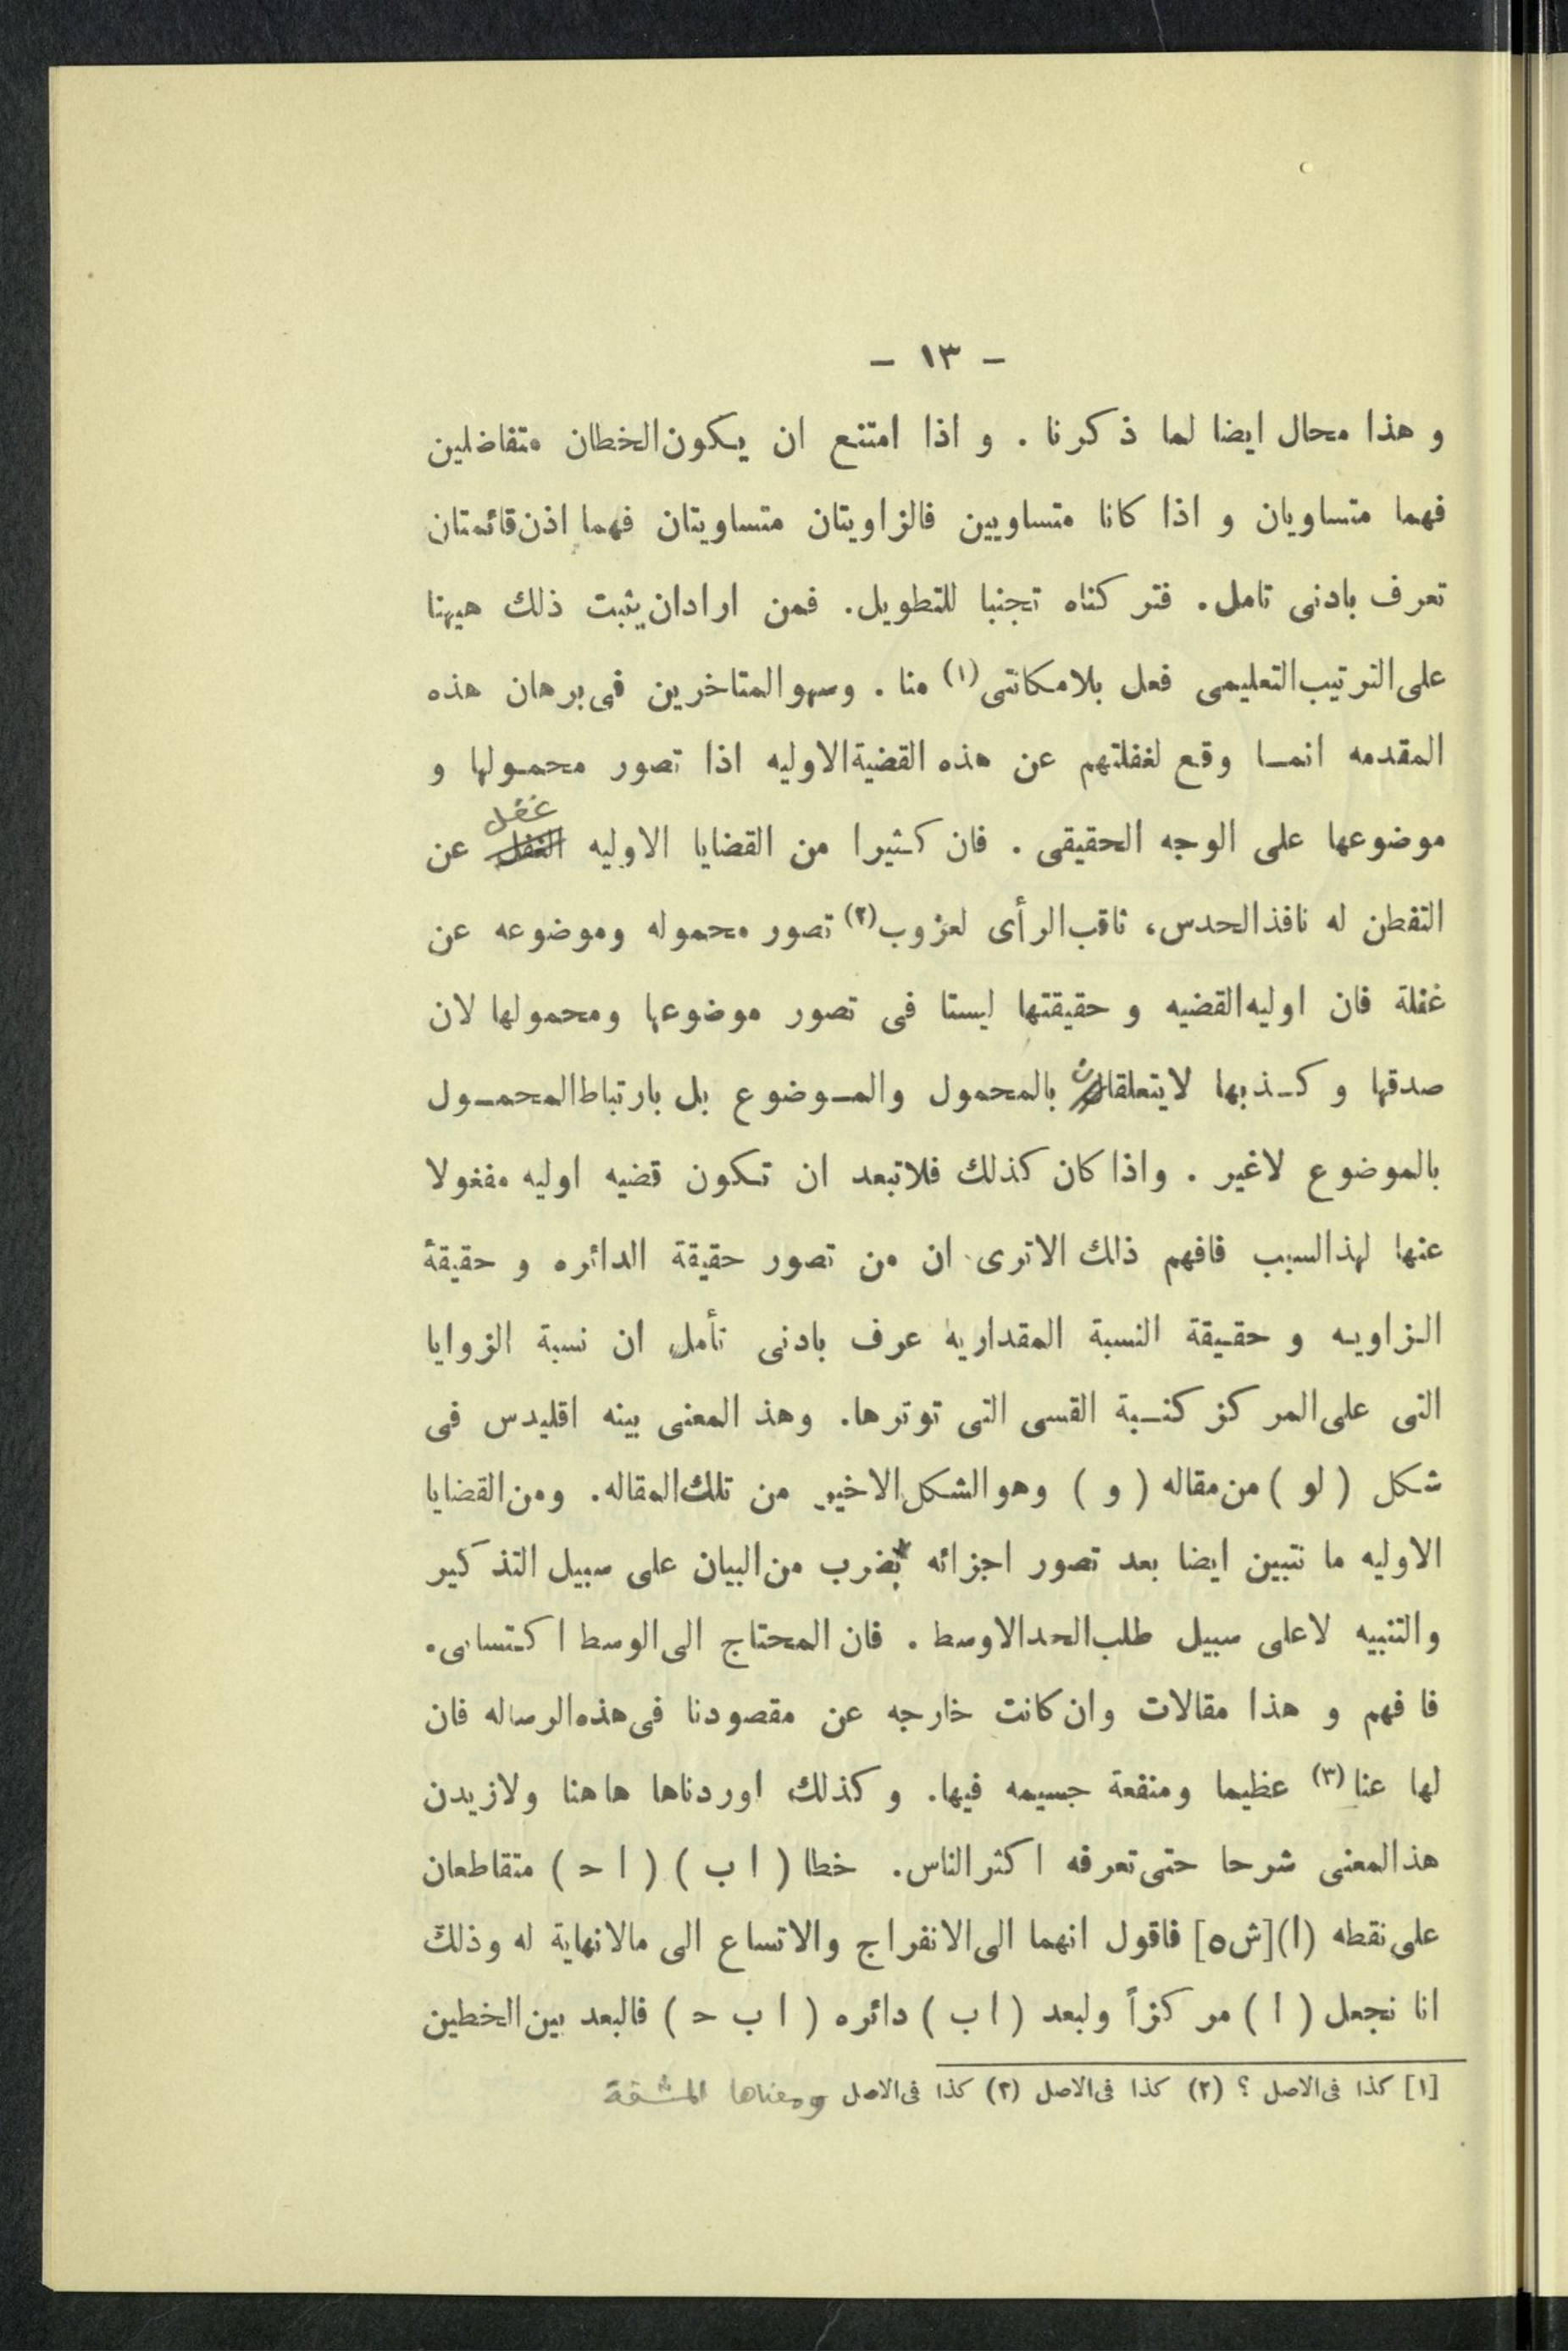 - ١٣ -
و هذا محال ايضا لما ذكرنا . و اذا امتنع ان يكون الخطان متفاضلين
فهما متساويان و اذا كانا متساويين فالزاويتان متساويتان فهما اذن قائمتان
تعرف بادنى تامل. فتركناه تجنبا للتطويل. فمن ارادان يثبت ذلك هيهنا
على الترتيب التعليمى فعل بلامكانتى (١) منا . وسهو المتاخرين فى برهان هذه
المقدمه انما وقع لغفلتهم عن هذه القضية الاوليه اذا تصور محمولها و
موضوعها على الوجه الحقيقى . فان كثيرا من القضايا الاوليه الغفل غفل عن
التفطن له نافذ الحدس، ثاقب الرأى لعزوب (٢) تصور محموله وموضوعه عن
غفلة فان اوليه القضيه و حقيقتها ليستا فى تصور موضوعها ومحمولها لان
صدقها و كذبها لايتعلقان بالمحمول والموضوع بل بارتباط المحمول
بالموضوع لاغير . واذا كان كذلك فلاتبعد ان تكون قضيه اوليه مفغولا
عنها لهذالسبب فافهم ذلك الاترى ان من تصور حقيقة الدائره و حقيقة
الزاويه و حقيقة النسبة المقداريه عرف بادنى تأمل ان نسبة الزوايا
التى على المركز كنسبة القسى التى توترها. وهذ المعنى بينه اقليدس فى
شكل ( لو ) من مقاله ( و ) وهو الشكل الاخير من تلك المقاله. ومن القضايا
الاوليه ما تتبين ايضا بعد تصور اجزائه بضرب من البيان على سبيل التذكير
والتنبيه لاعلى سبيل طلب الحد الاوسط . فان المحتاج الى الوسط اكتسابى.
فافهم و هذا مقالات وان كانت خارجه عن مقصودنا فى هذه الرساله فان
لها عنا (٣) عظيما ومنفعة جسيمه فيها. وكذلك اوردناها هاهنا ولازيدن
هذ المعنى شرحا حتى تعرفه اكثر الناس. خطا ( ا ب ) ( ا حـ ) متقاطعان
على نقطه (ا) [ش٥] فاقول انهما الى الانفراج والاتساع الى مالانهاية له وذلك
انا نجعل ( ا ) مركزاً ولبعد ( ا ب ) دائره ( ا ب حـ ) فالبعد بين الخطين
[١] كذا فى الاصل ؟ (٢) كذا فى الاصل (٣) كذا فى الاصل ومعناها المشقة